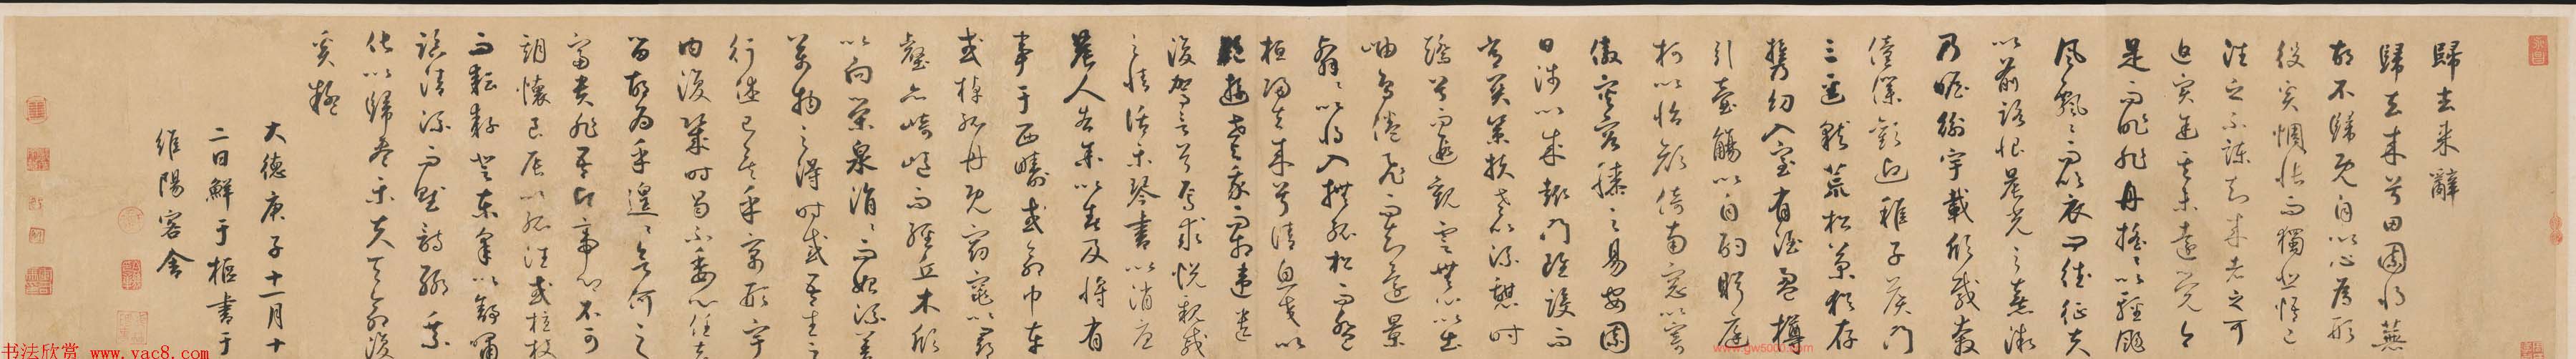 歸去来辭
歸去来兮田園將蕪
胡不歸既自以心為形
役奚惆悵而獨悲悟已
往之不諫知来者之可
追實迷途其未遠覺今
是而昨非舟搖〻以輕颺
風飄〻而吹衣問征夫
以前路恨晨光之熹微
乃瞻衡宇載欣載奔
僮僕歡迎稚子候門
三逕就荒松菊猶存
攜幼入室有酒盈樽
引壺觴以自酌眄庭
柯以怡顏倚南窗以寄
傲審容膝之易安園
日涉以成趣門雖設而
常關策扶老以流憩時
矯首而遐觀雲無心以出
岫鳥倦飛而知還景
翳〻以將入撫孤松而盤
桓歸去来兮請息交以
絕遊世與我而相遺
復駕言兮焉求悅親戚
之情話樂琴書以消憂
農人告余以春及將有
事于西疇或命巾車
或棹孤舟既窈窕以尋
壑亦崎嶇而經丘木欣
以向榮泉涓〻而始流善
萬物之得時感吾生之
行休已矣乎寓形宇
內復幾時曷不委心任去
留胡為乎遑〻兮何之
富貴非吾願帝鄉不可
期懷良辰以孤往或植杖
而耘耔登東皋以舒嘯
臨清流而賦詩聊乘
化以歸盡樂夫天命復
奚疑
大德庚子十一月十
二日鮮于樞書于
維陽客舍
书法欣赏 www.yac8.com
www.gw5000.com